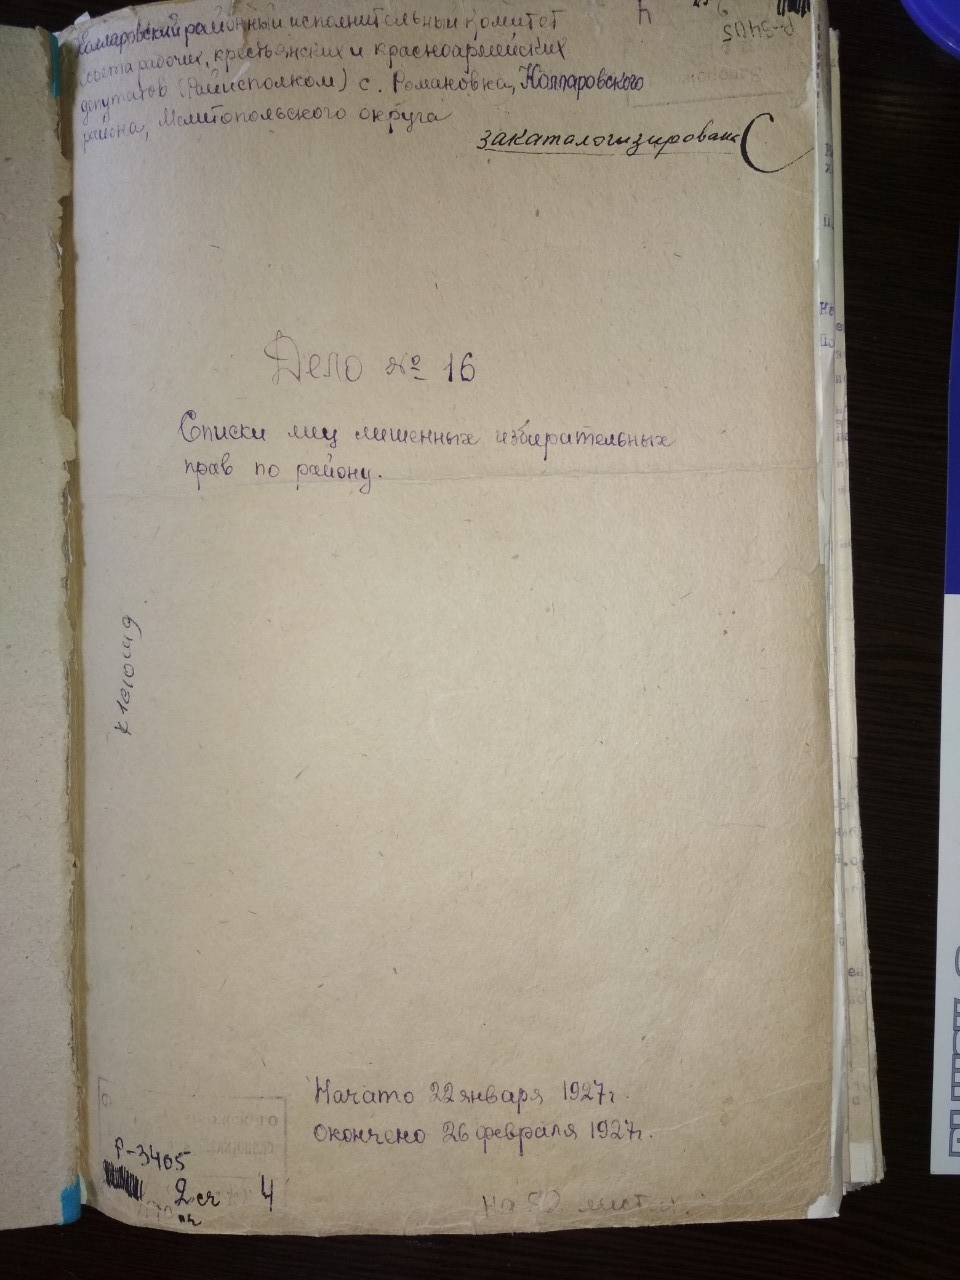 Коларовский районный исполнительный комитет
совета рабочих, крестьянских и красноармейских
депутатов (Райисполком) с. Романовка, Коларовского
района, Мелитопольского округа
закаталогизировано
Дело № 16
Списки лиц лишенных избирательных
прав по району.
Начато 22 января 1927г.
Окончено 26 февраля 1927г.
Р-3405
2сч
4
на 90 листах
Р-3405